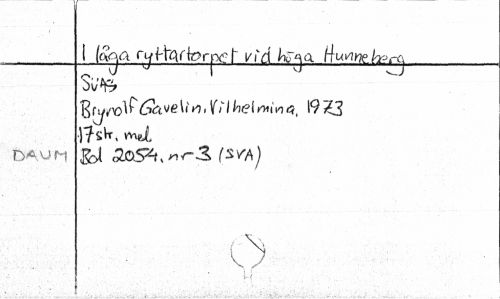 I låga ryttartorpet vid höga Hunneberg
SvAs
Brynolf Gavelin, Vilhelmina, 1973
17 str. mel
DAUM Bd 2054, nr 3 (SVA)